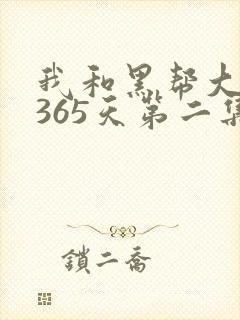 我和黑帮大
365天第二集
鎖二喬